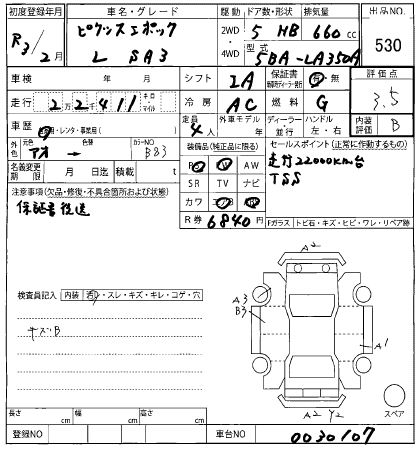 初度登録年月 車名・グレード 駆動 ドア数・形状 排気量 出品NO.
R3/2月 L SA3 2WD 4WD 5 HB 660cc 530
型式 5BA-LA350A
車検 年 月 シフト IA 保証書 有・無 評価点
走行 22411 キロ・マイル 冷房 AC 燃料 G 3.5
車歴 レンタ・事業用( ) 定員 4人 外車モデル 年 ディーラー 並行 ハンドル 左・右 内装評価 B
外色 元色 アオ → 色替 カラーNO B83
名義変更期限 月 日迄 積載 t
装備品(純正品に限る)
AW
SR TV ナビ
カワ
R券 6840円
セールスポイント(正常に作動するもの)
走行22000km台
TSS
注意事項(欠品・修復・不具合箇所および状態)
保証書後送
Fガラス トビ石・キズ・ヒビ・ワレ・リペア跡
検査員記入 内装 ・スレ・キズ・キレ・コゲ・穴
キズB
A2
A3
B3
A1
A2 Y2
スペア
長さ cm 幅 cm 高さ cm
登録NO 車台NO 0030107